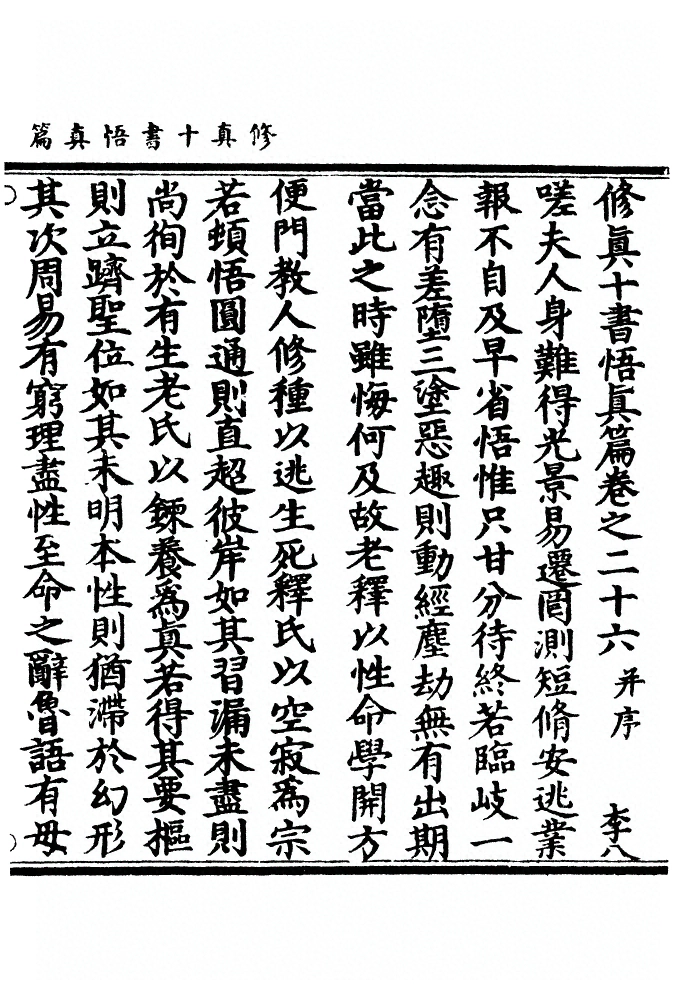 修真十書悟真篇
修眞十書悟眞篇卷之二十六 并序 李八
嗟夫人身難得光景易遷罔測短脩安逃業
報不自及早省悟惟只甘分待終若臨岐一
念有差墮三塗惡趣則動經塵劫無有出期
當此之時雖悔何及故老釋以性命學開方
便門教人修種以逃生死釋氏以空寂爲宗
若頓悟圓通則直超彼岸如其習漏未盡則
尚徇於有生老氏以鍊養爲真若得其要樞
則立躋聖位如其未明本性則猶滯於幻形
其次周易有窮理盡性至命之辭魯語有毋